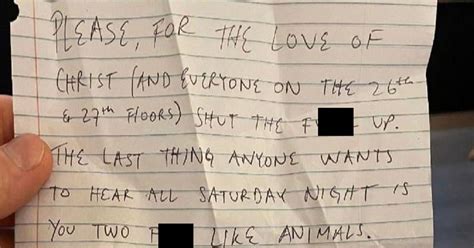 PLEASE, FOR THE LOVE OF
CHRIST (AND EVERYONE ON THE 26th
& 27th FLOORS) SHUT THE F UP.
THE LAST THING ANYONE WANTS
TO HEAR ALL SATURDAY NIGHT IS
YOU TWO F LIKE ANIMALS.